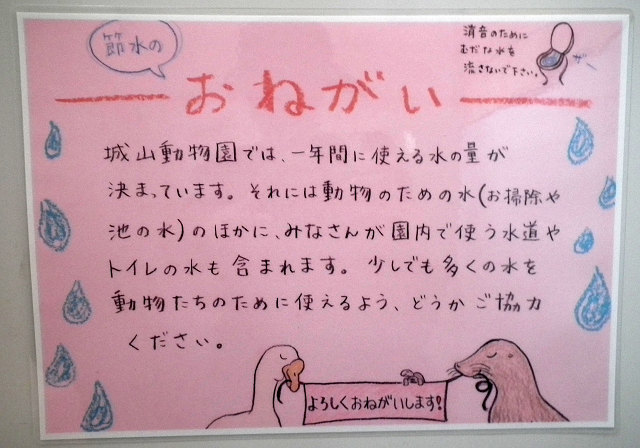 節水の
消音のために
むだな水を
流さないで下さい。
ザー
おねがい
城山動物園では、一年間に使える水の量が
決まっています。それには動物のための水(お掃除や
池の水)のほかに、みなさんが園内で使う水道や
トイレの水も含まれます。少しでも多くの水を
動物たちのために使えるよう、どうかご協力
ください。
よろしくおねがいします!